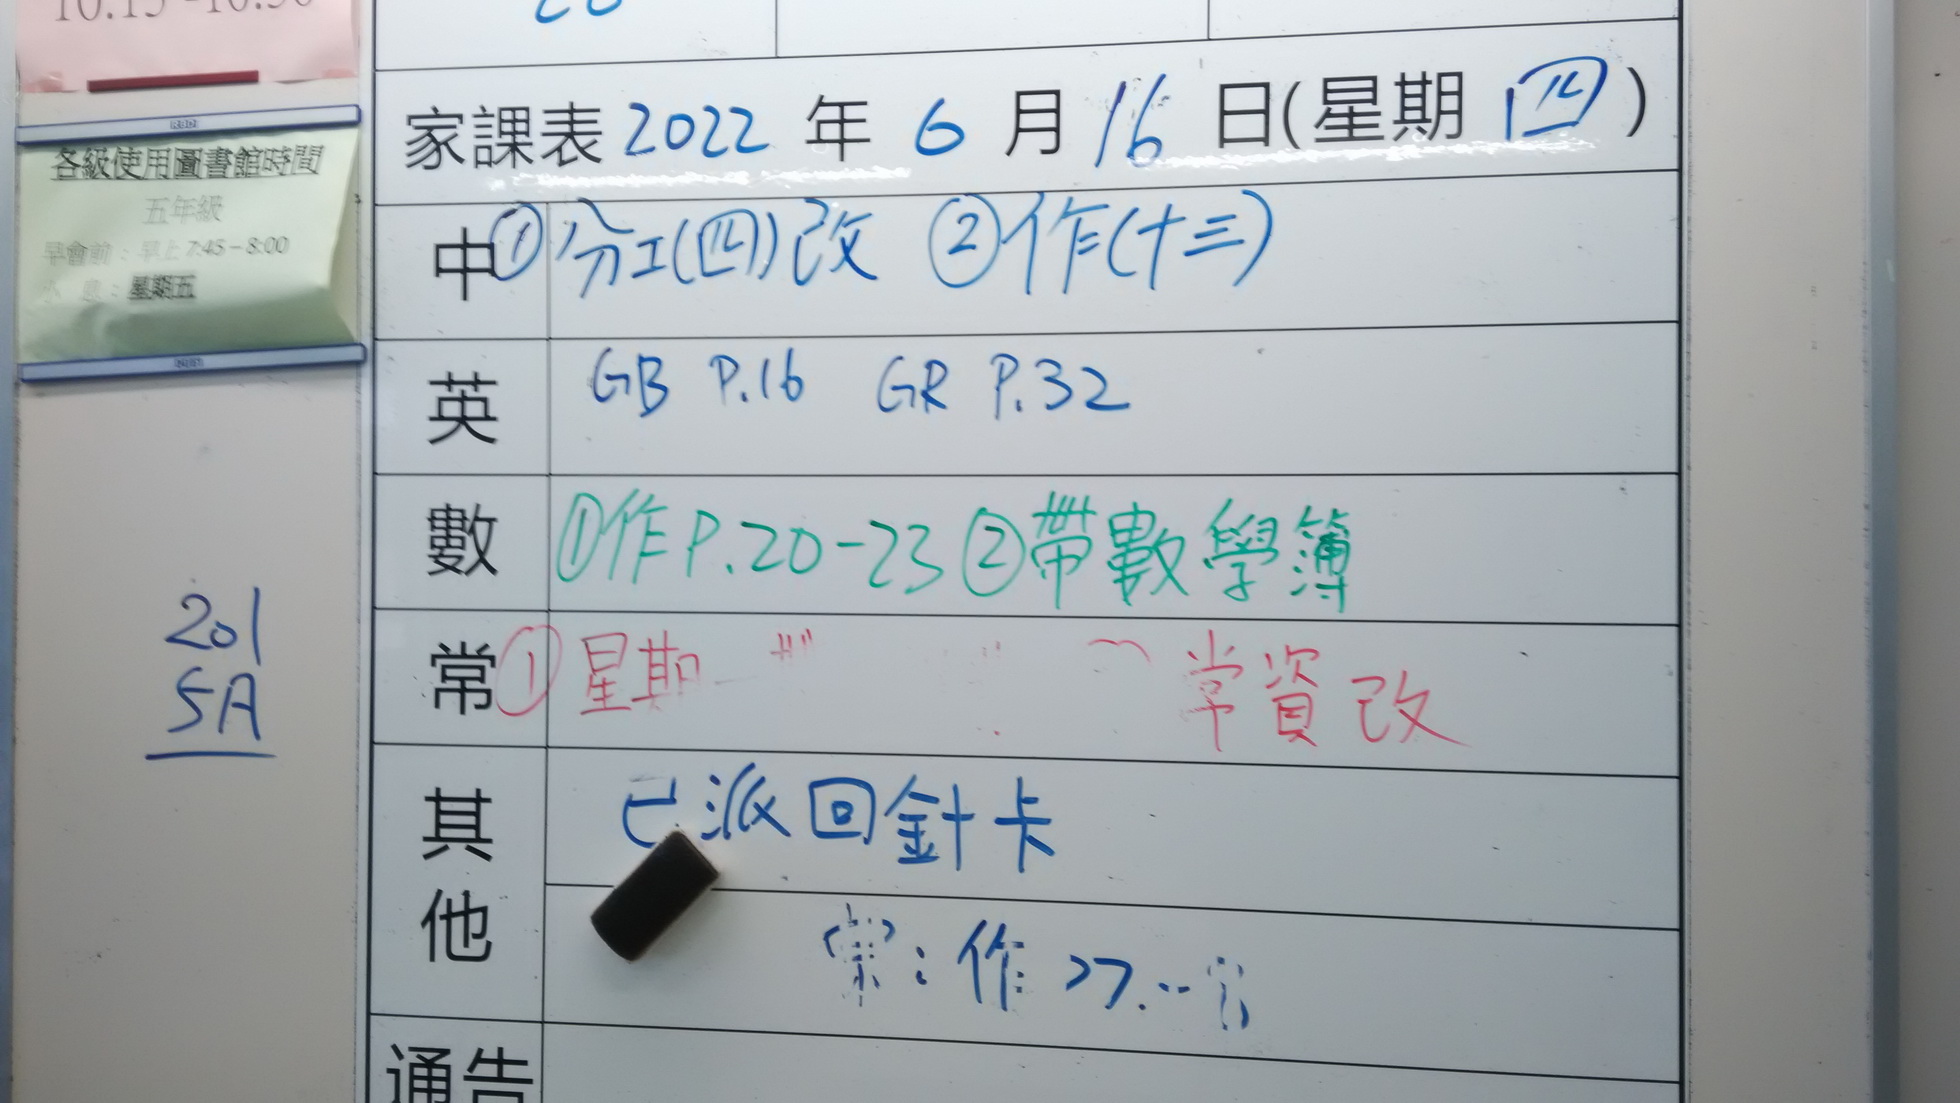 10:15-10:30
各級使用圖書館時間
五年級
早會前：早上 7:45－8:00
息：星期五
201
5A
家課表 2022 年 6 月 16 日(星期 四)
中 ① 分工(四)改 ② 作(十三)
英 GB P.16 GR P.32
數 ① 作 P.20-23 ② 帶數學簿
常 ① 星期 常資改
其他 已派回針卡
常：作 27.
通告